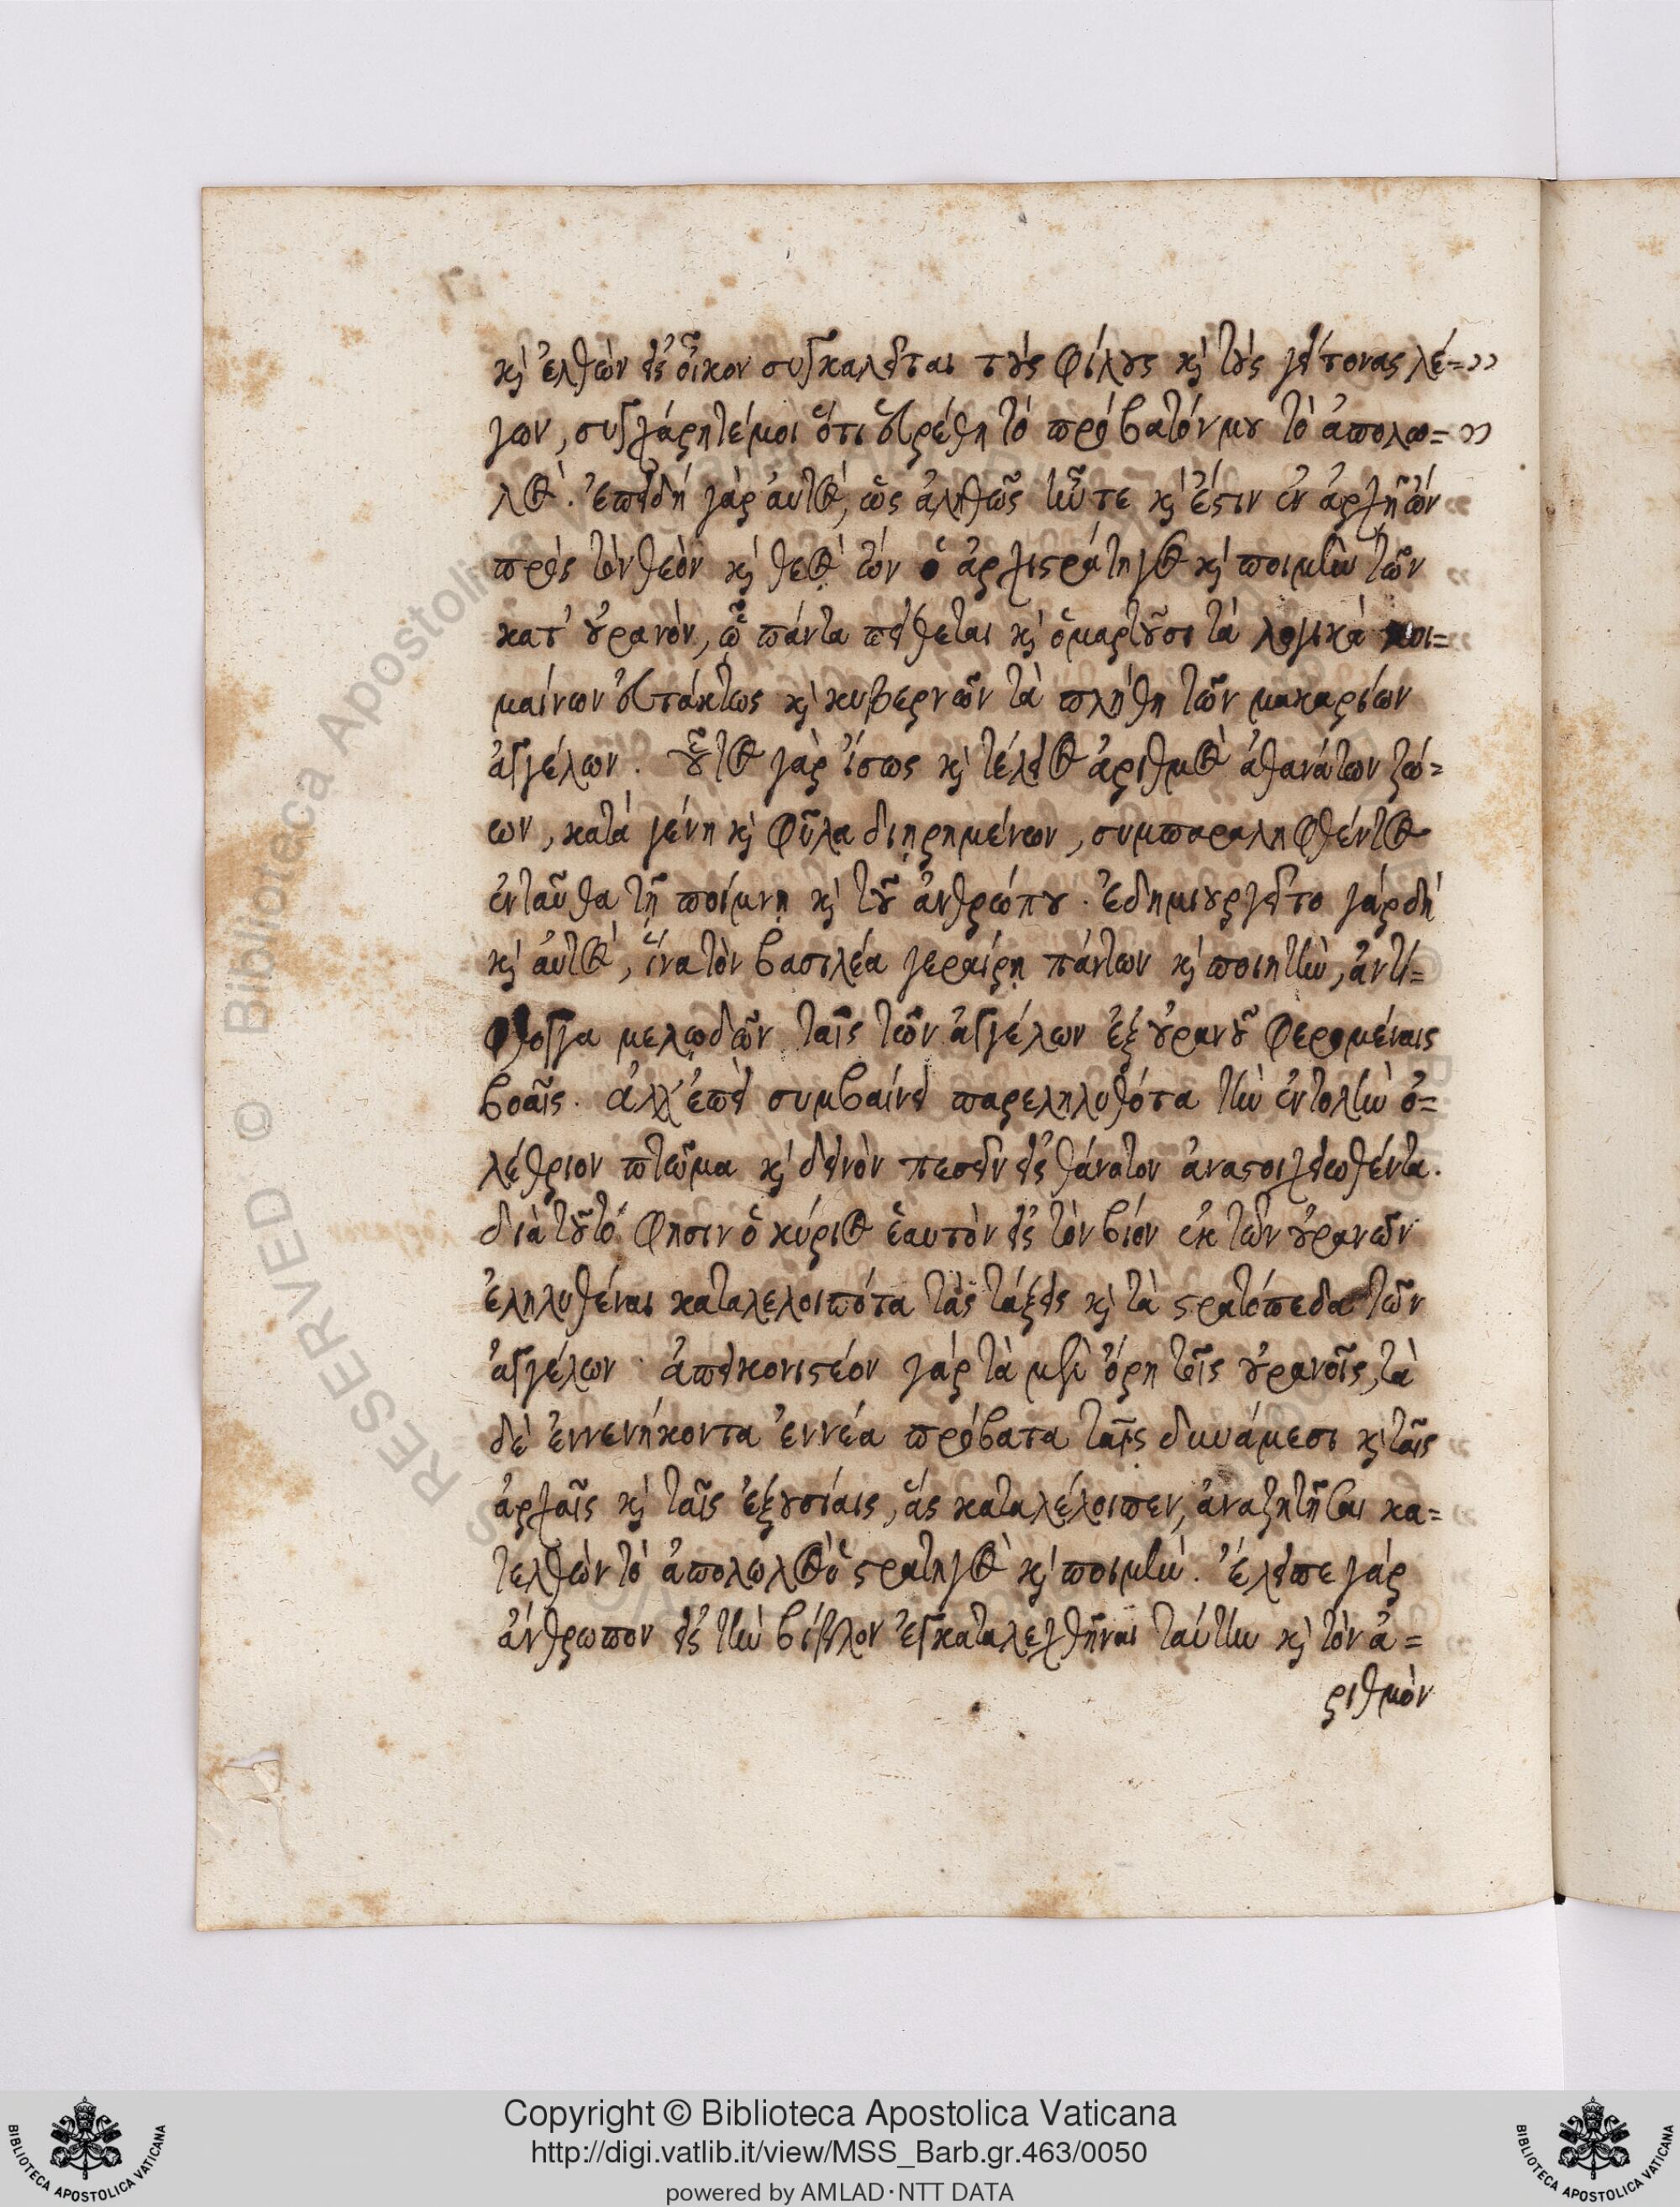 καὶ ἐλθὼν εἰς οἶκον συγκαλεῖται τοὺς φίλους καὶ τοὺς γείτονας λέ=
γων, συγχάρητέ μοι ὅτι εὑρέθη τὸ πρόβατόν μου τὸ ἀπολω=
λός. ἐπειδή γὰρ αὐτός, ὡς ἀληθῶς ἦν τε καὶ ἔστιν ἐν ἀρχῇ ὤν
πρὸς τὸν θεὸν καὶ θεός ὤν ὁ ἀρχιστράτηγος καὶ ποιμὴν τῶν
κατ' οὐρανὸν, ᾧ πάντα πείθεται καὶ ὁμαρτοῦσι τὰ λογικὰ ποι=
μαίνων εὐτάκτως καὶ κυβερνῶν τὰ πλήθη τῶν μακαρίων
ἀγγέλων. οὗτος γὰρ ἴσως καὶ τέλειος ἀριθμὸς ἀθανάτων ζώ=
ων, κατὰ γένη καὶ φῦλα διῃρημένων, συμπαραληφθέντος
ἐνταῦθα τῇ ποίμνῃ καὶ τοῦ ἀνθρώπου. ἐδημιουργεῖτο γάρ δή
καὶ αὐτός, ἵνα τὸν βασιλέα γεραίρῃ πάντων καὶ ποιητὴν, ἀντί=
φθογγα μελῳδῶν ταῖς τῶν ἀγγέλων ἐξ οὐρανοῦ φερομέναις
βοαῖς. ἀλλ' ἐπεὶ συμβαίνει παρεληλυθότα τὴν ἐντολὴν ὀ=
λέθριον πτῶμα καὶ δεινὸν πεσεῖν εἰς θάνατον ἀναστοιχειωθέντα.
διὰ τοῦτο φησιν ὁ κύριος ἑαυτὸν εἰς τὸν βίον ἐκ τῶν οὐρανῶν
ἐληλυθέναι καταλελοιπότα τὰς τάξεις καὶ τὰ στρατόπεδα τῶν
ἀγγέλων. ἀπεικονιστέον γὰρ τὰ μὲν ὄρη τοῖς οὐρανοῖς, τὰ
δὲ ἐννενήκοντα ἐννέα πρόβατα ταῖς δυνάμεσι καὶ ταῖς
ἀρχαῖς καὶ ταῖς ἐξουσίαις, ἅς καταλέλοιπεν, ἀναζητῆσαι κα=
τελθὼν τὸ ἀπολωλὸς ὁ στρατηγὸς καὶ ποιμὴν. ἔλειπε γάρ
ἄνθρωπον εἰς τὴν βίβλον ἐγκαταλεχθῆναι ταύτην καὶ τὸν ἀ=
ριθμὸν
© Biblioteca Apostolica Vaticana
RESERVED
Copyright © Biblioteca Apostolica Vaticana
http://digi.vatlib.it/view/MSS_Barb.gr.463/0050
powered by AMLAD·NTT DATA
BIBLIOTECA APOSTOLICA VATICANA
BIBLIOTECA APOSTOLICA VATICANA